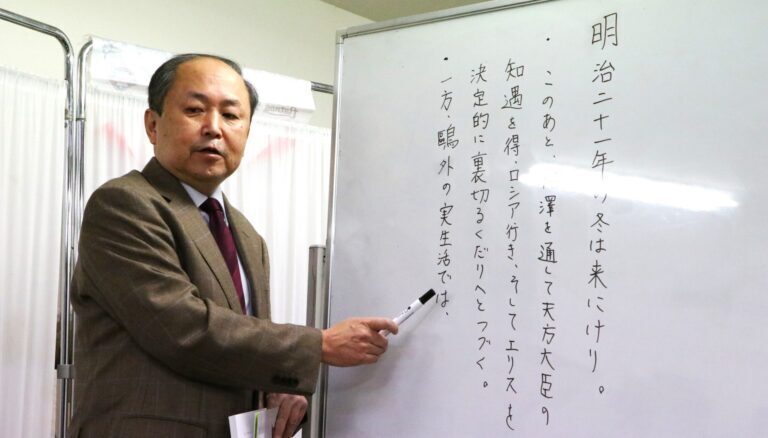 明治二十一年の冬は来にけり。
・このあと、澤を通して天方大臣の
知遇を得、ロシア行き、そしてエリスを
決定的に裏切るくだりへとつづく。
・一方、鷗外の実生活では、